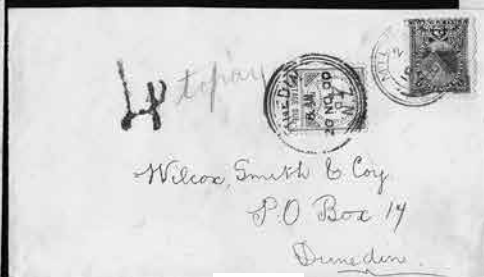 4d to pay
DUNEDIN
20 NO 00
Wilcox, Smith & Coy
P.O Box 14
Dunedin.